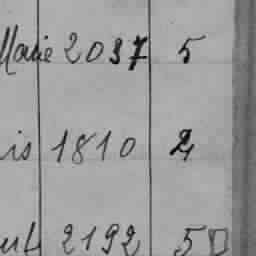 Marie 2037 5
is 1810 2
2192 50